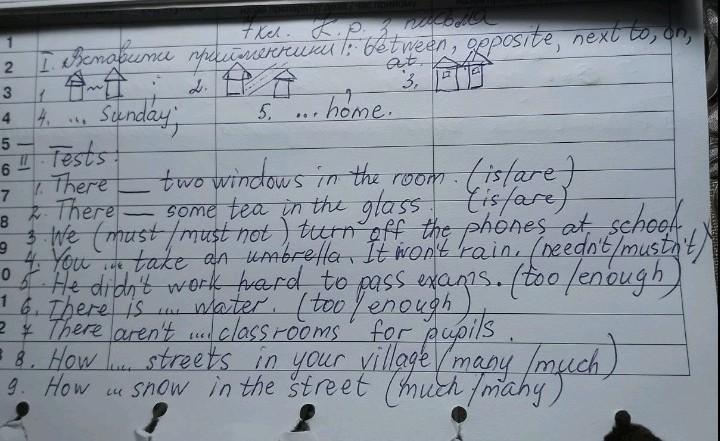 7 кл. К.р. з письма
I. Вставити прийменники: between, opposite, next to, on, at.
1. ; 2. , 3.
4. ... Sunday; 5. ... home.
II Tests:
1. There __ two windows in the room. (is/are)
2. There __ some tea in the glass. (is/are)
3. We (must/must not) turn off the phones at school.
4. You ... take an umbrella. It won't rain. (needn't/mustn't)
5. He didn't work hard to pass exams. (too/enough)
6. There is .... water. (too/enough)
7. There aren't .... classrooms for pupils.
8. How .... streets in your village (many/much)
9. How ... snow in the street (much/many)
1
2
3
4
5
6
7
8
9
0
1
2
3